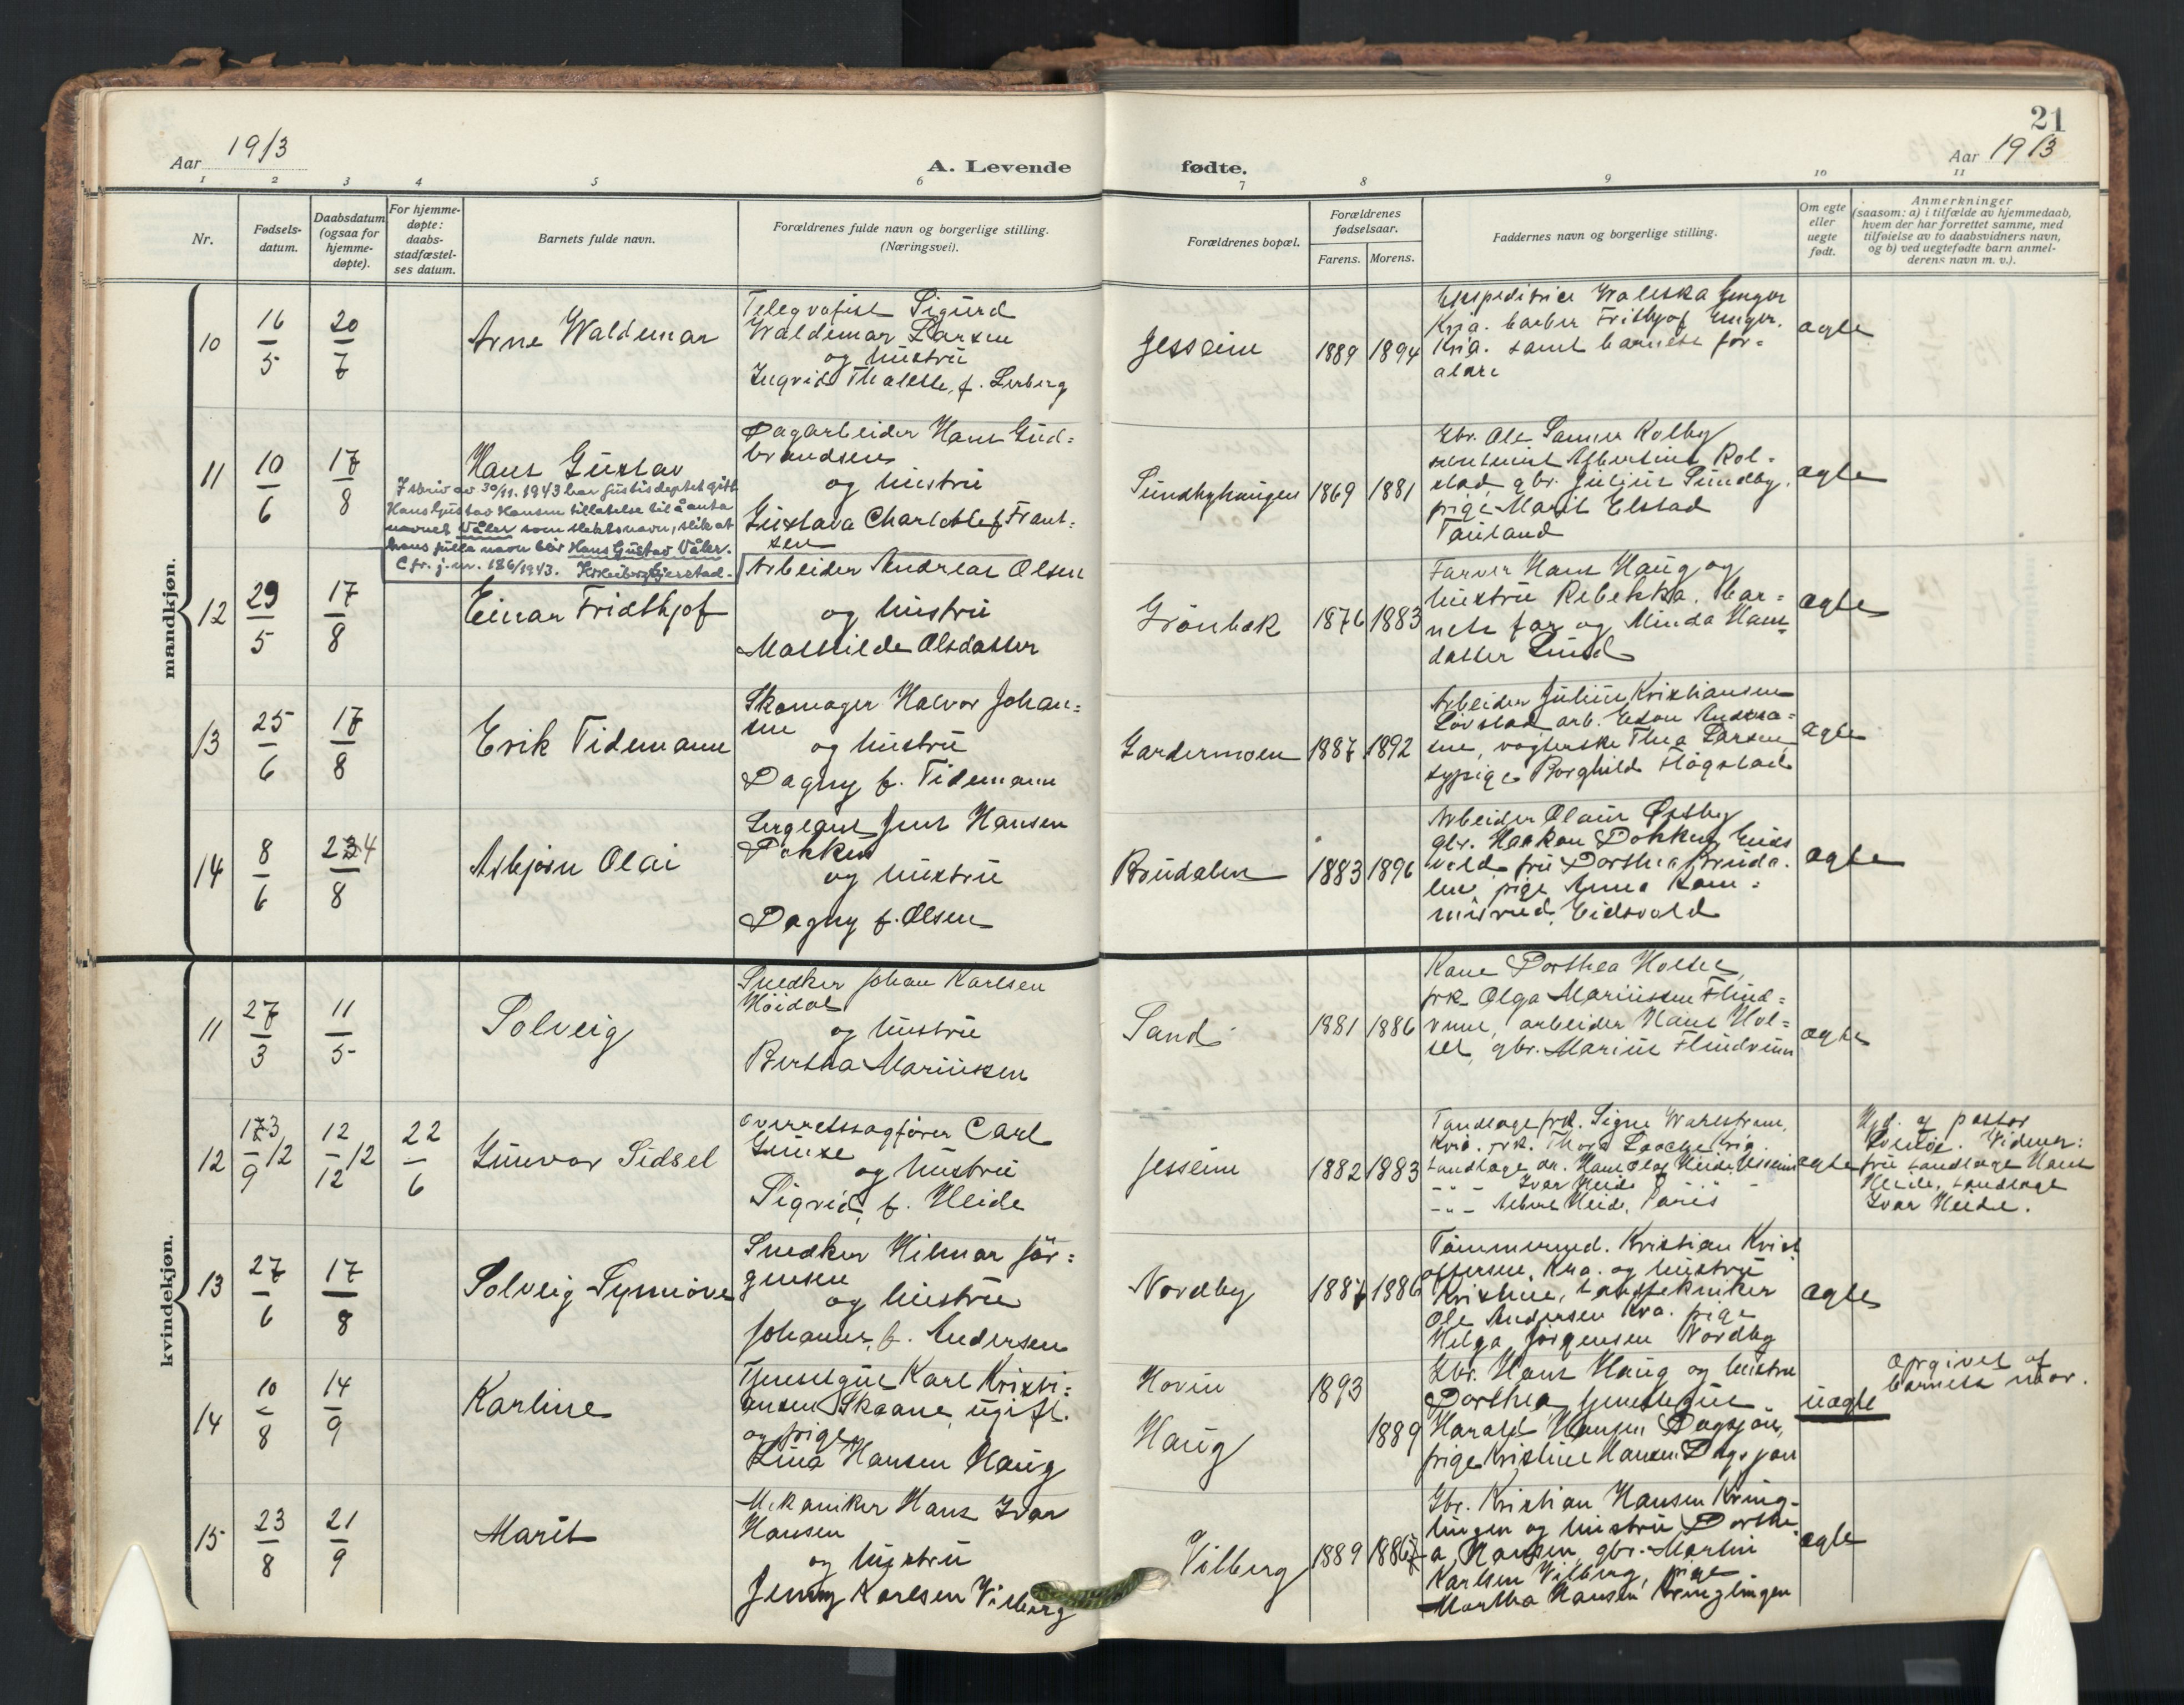 21
Aar 1913
A. Levende fødte.
Aar 1913
1 2 3 4 5 6 7 8 9 10 11
Nr.
Fødsels-
datum.
Daabsdatum
(ogsaa for
hjemme-
døpte).
For hjemme-
døpte:
daabs-
stadfæstel-
ses datum.
Barnets fulde navn.
Forældrenes fulde navn og borgerlige stilling.
(Næringsvei).
Forældrenes bopæl.
Forældrenes
fødselsaar.
Farens. Morens.
Faddernes navn og borgerlige stilling.
Om egte
eller
uegte
født.
Anmerkninger
(saasom: a) i tilfælde av hjemmedaab,
hvem der har forrettet samme, med
tilføielse av to daabsvidners navn,
og b) ved uegtefødte barn anmel-
derens navn m. v.).
mandkjøn.
10
16/5
20/7
Arne Waldemar
Telegrafist Sigurd
Waldemar Larsen
og hustru
Ingvid Thalette, f. Lerberg
Jesseim
1889 1894
Ekspeditrice Waleska Enger
Kria. barber Frithjof Enger.
Kria. samt barnets for=
ældre
ægte
11
10/6
17/8
Hans Gustav
I skriv av 30/11.1943 har Justisdeptet gitt
Hans Gustav Hansen tillatelse til å anta
navnet Våler som slektsnavn, slik at
hans fulle navn blir Hans Gustav Våler.
Cfr. j.nr. 186/1943.
Dagarbeider Hans Gud=
brandsen
og hustru
Gustava Charlotte f. Frant=
sen
Sundbyhaugen
1869 1881
Gbr. Ole Sanner Kolby
Albertine Rol=
stad, gbr. Julius Sundby,
pige Marit Elstad
Tauland
ægte
12
29/5
17/8
Einar Fridthjof
Arbeider Andreas Olsen
og hustru
Mathilde Olsdatter
Grønbæk
1876 1883
Farver Hans Haug og
hustru Rebekka. Bar=
nets far og Minda Hans=
datter Lund
ægte
13
25/6
17/8
Erik Tidemann
Skomager Halvor Johan=
sen
og hustru
Dagny f. Tidemann
Gardermoen
1887 1892
Arbeider Julius Kristiansen
Løvstad arb. Edon Andrea=
sen, vogterske Thea Larsen
sypige Borghild Flogstad
ægte
14
8/6
234/8
Asbjørn Olai
Sergeant Jens Hansen
Dokken
og hustru
Dagny f. Olsen
Brudalen
1883 1896
Arbeider Olaus Østby
gbr. Haakon Dokken, Eids
vold, fru Dorthea Bruda=
len, pige Anna Kom=
misrud, Eidsvold
ægte
kvindekjøn.
11
27/3
11/5
Solveig
Snedker Johan Karlsen
Høidal
og hustru
Bertha Mariussen
Sand
1881 1886
Kone Dorthea Holset,
frk. Olga Mariussen Flind=
runn, arbeider Hans Hol=
set, gbr. Marius Flindrunn
ægte
12
173/9 12
12/12 12
22/6
Gunvor Sidsel
Overretssagfører Carl
Gunse
og hustru
Sigrid, f. Heide
Jesseim
1882 1883
Tandlæge frk. Signe Wahlstrøm,
Kria. frk. Thora Laache Kria.
tandlæge dr. Hans Olaf Heide, Jesseim
-"- Ivar Heide -"-
-"- Heide, Paris
ægte
Hjd. af pastor
Vidner:
fru tandlæge Hans
Heide, tandlæge
Ivar Heide.
13
27/6
17/8
Solveig Synnøve
Snedker Hilmar Jør=
gensen
og hustru
Johanne, f. Andersen
Nordby
1887 1886
Tømmermd. Kristian Krist
offersen, Kra. og hustru
Kristine, tandtekniker
Ole Andersen Kra. pige
Helga Jørgensen Nordby
ægte
14
10/8
14/9
Karline
Tjenestegut Karl Kristi=
ansen Skaane, ugift.
og pige
Lina Hansen Haug
Hovin
Haug
1893
1889
Gbr. Hans Haug og hustru
Dorthea, tjenestegut
Harald Hansen Dagsjøn,
pige Kristine Hansen Dagsjøn
uægte
Opgivet af
barnets mor.
15
23/8
21/9
Marit
Mekaniker Hans Ivar
Hansen
og hustru
Jenny Karlsen Vilberg
Vilberg
1889 18867
Gbr. Kristian Hansen Kring-
lingen og hustru Dorthe
a, Hansen, gbr. Martin
Karlsen Vilberg, pige
Martha Hansen Kringlingen
ægte